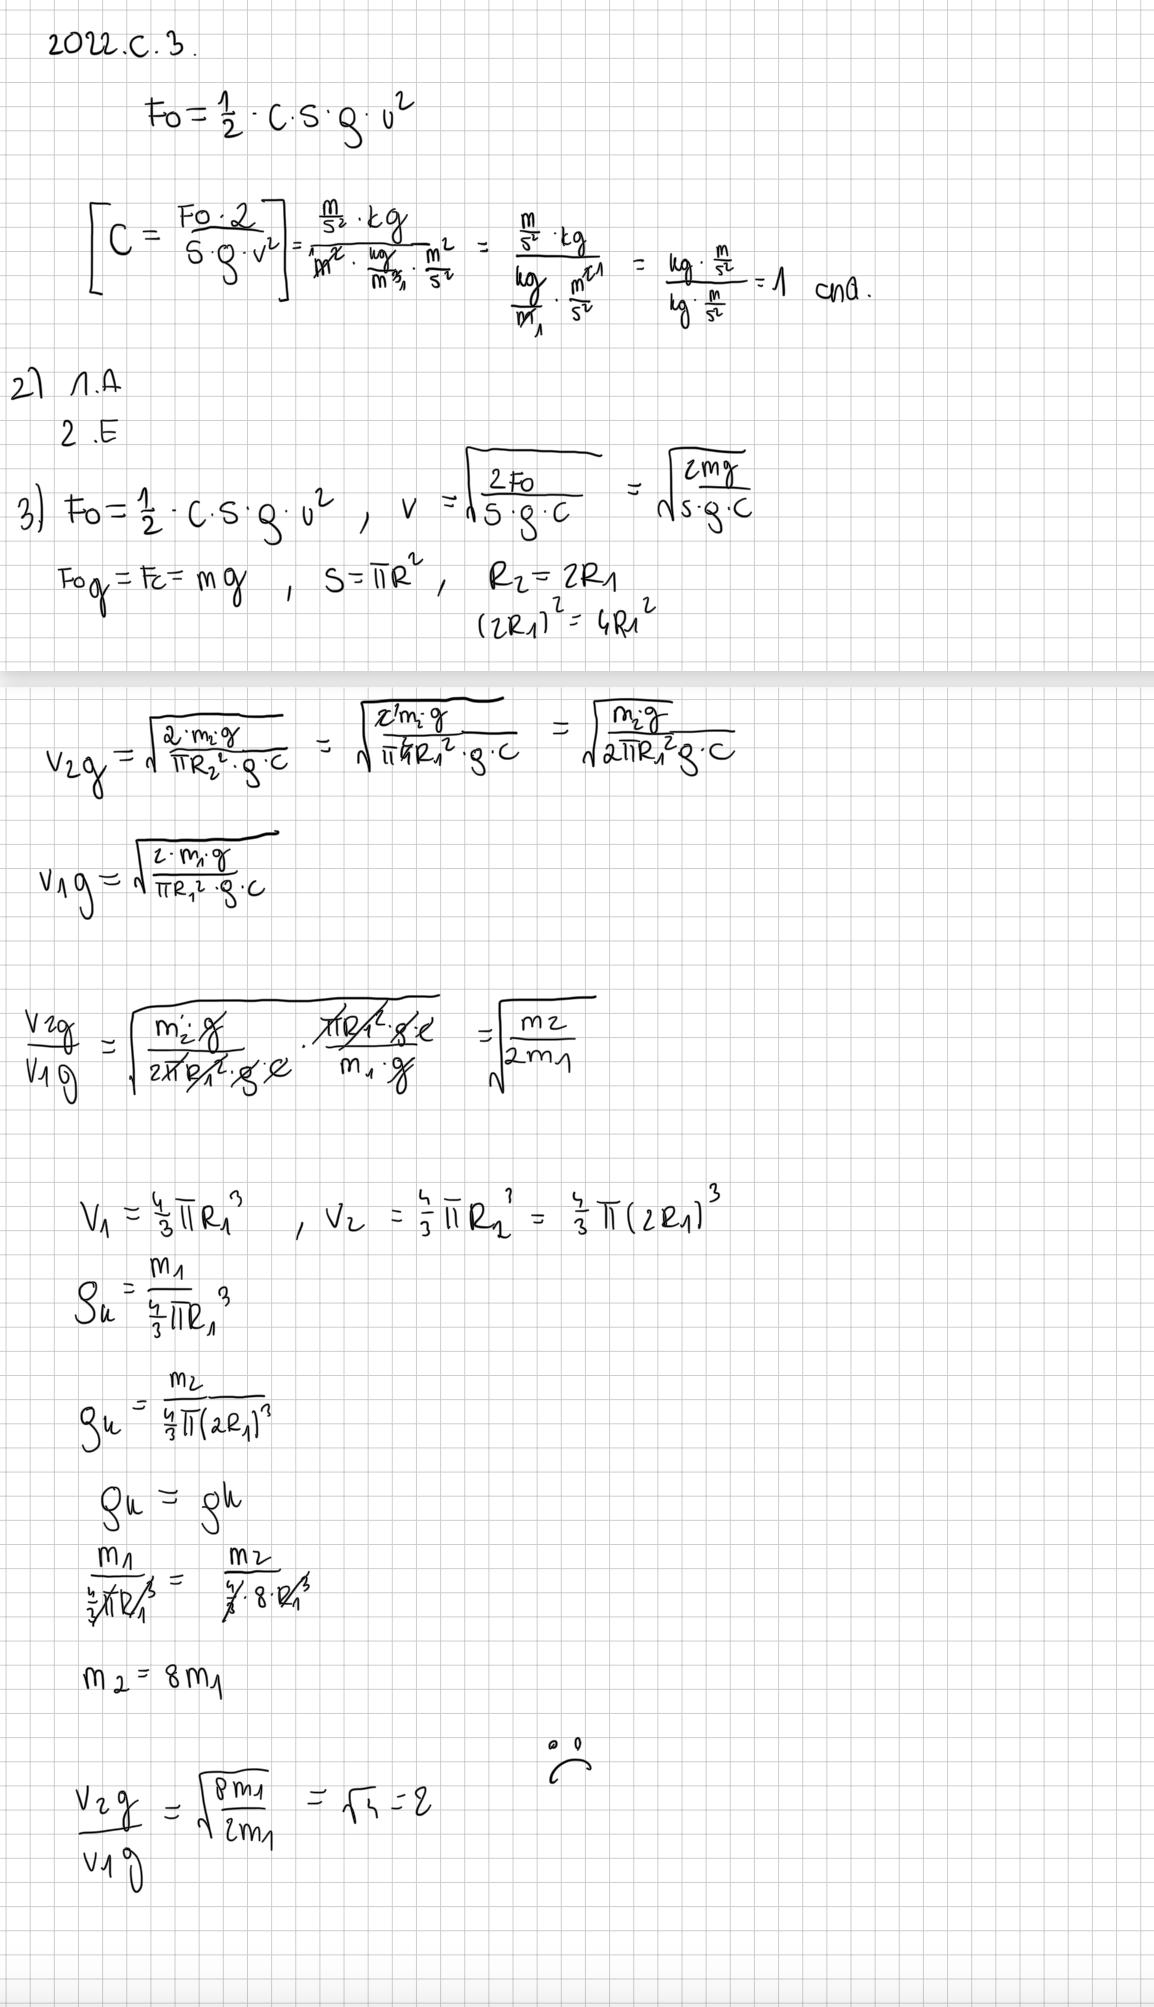 2022.C.3.
Fo = 1/2 · C·S·ρ·v²
[C = Fo·2 / S·ρ·v²] = m/s² · kg / m² · kg/m³ · m²/s² = m/s² · kg / kg/m · m²/s² = kg · m/s² / kg · m/s² = 1 cnd.
2) 1.A
2.E
3) Fo = 1/2 · C·S·ρ·v² , v = √(2Fo / S·ρ·C) = √(2mg / S·ρ·C)
Fog = Fc = mg , S = πR² , R₂ = 2R₁
(2R₁)² = 4R₁²
v₂g = √(2·m₂·g / πR₂²·ρ·C) = √(2m₂·g / π4R₁²·ρ·C) = √(m₂·g / 2πR₁²ρ·C)
v₁g = √(2·m₁·g / πR₁²·ρ·C)
v₂g / v₁g = √(m₂·g / 2πR₁²·ρ·C · πR₁²·ρ·C / m₁·g) = √(m₂ / 2m₁)
V₁ = 4/3 πR₁³ , V₂ = 4/3 πR₂³ = 4/3 π(2R₁)³
ρk = m₁ / 4/3 πR₁³
ρk = m₂ / 4/3 π(2R₁)³
ρk = ρk
m₁ / 4/3 πR₁³ = m₂ / 4/3 · 8 · R₁³
m₂ = 8m₁
v₂g / v₁g = √(8m₁ / 2m₁) = √4 = 2